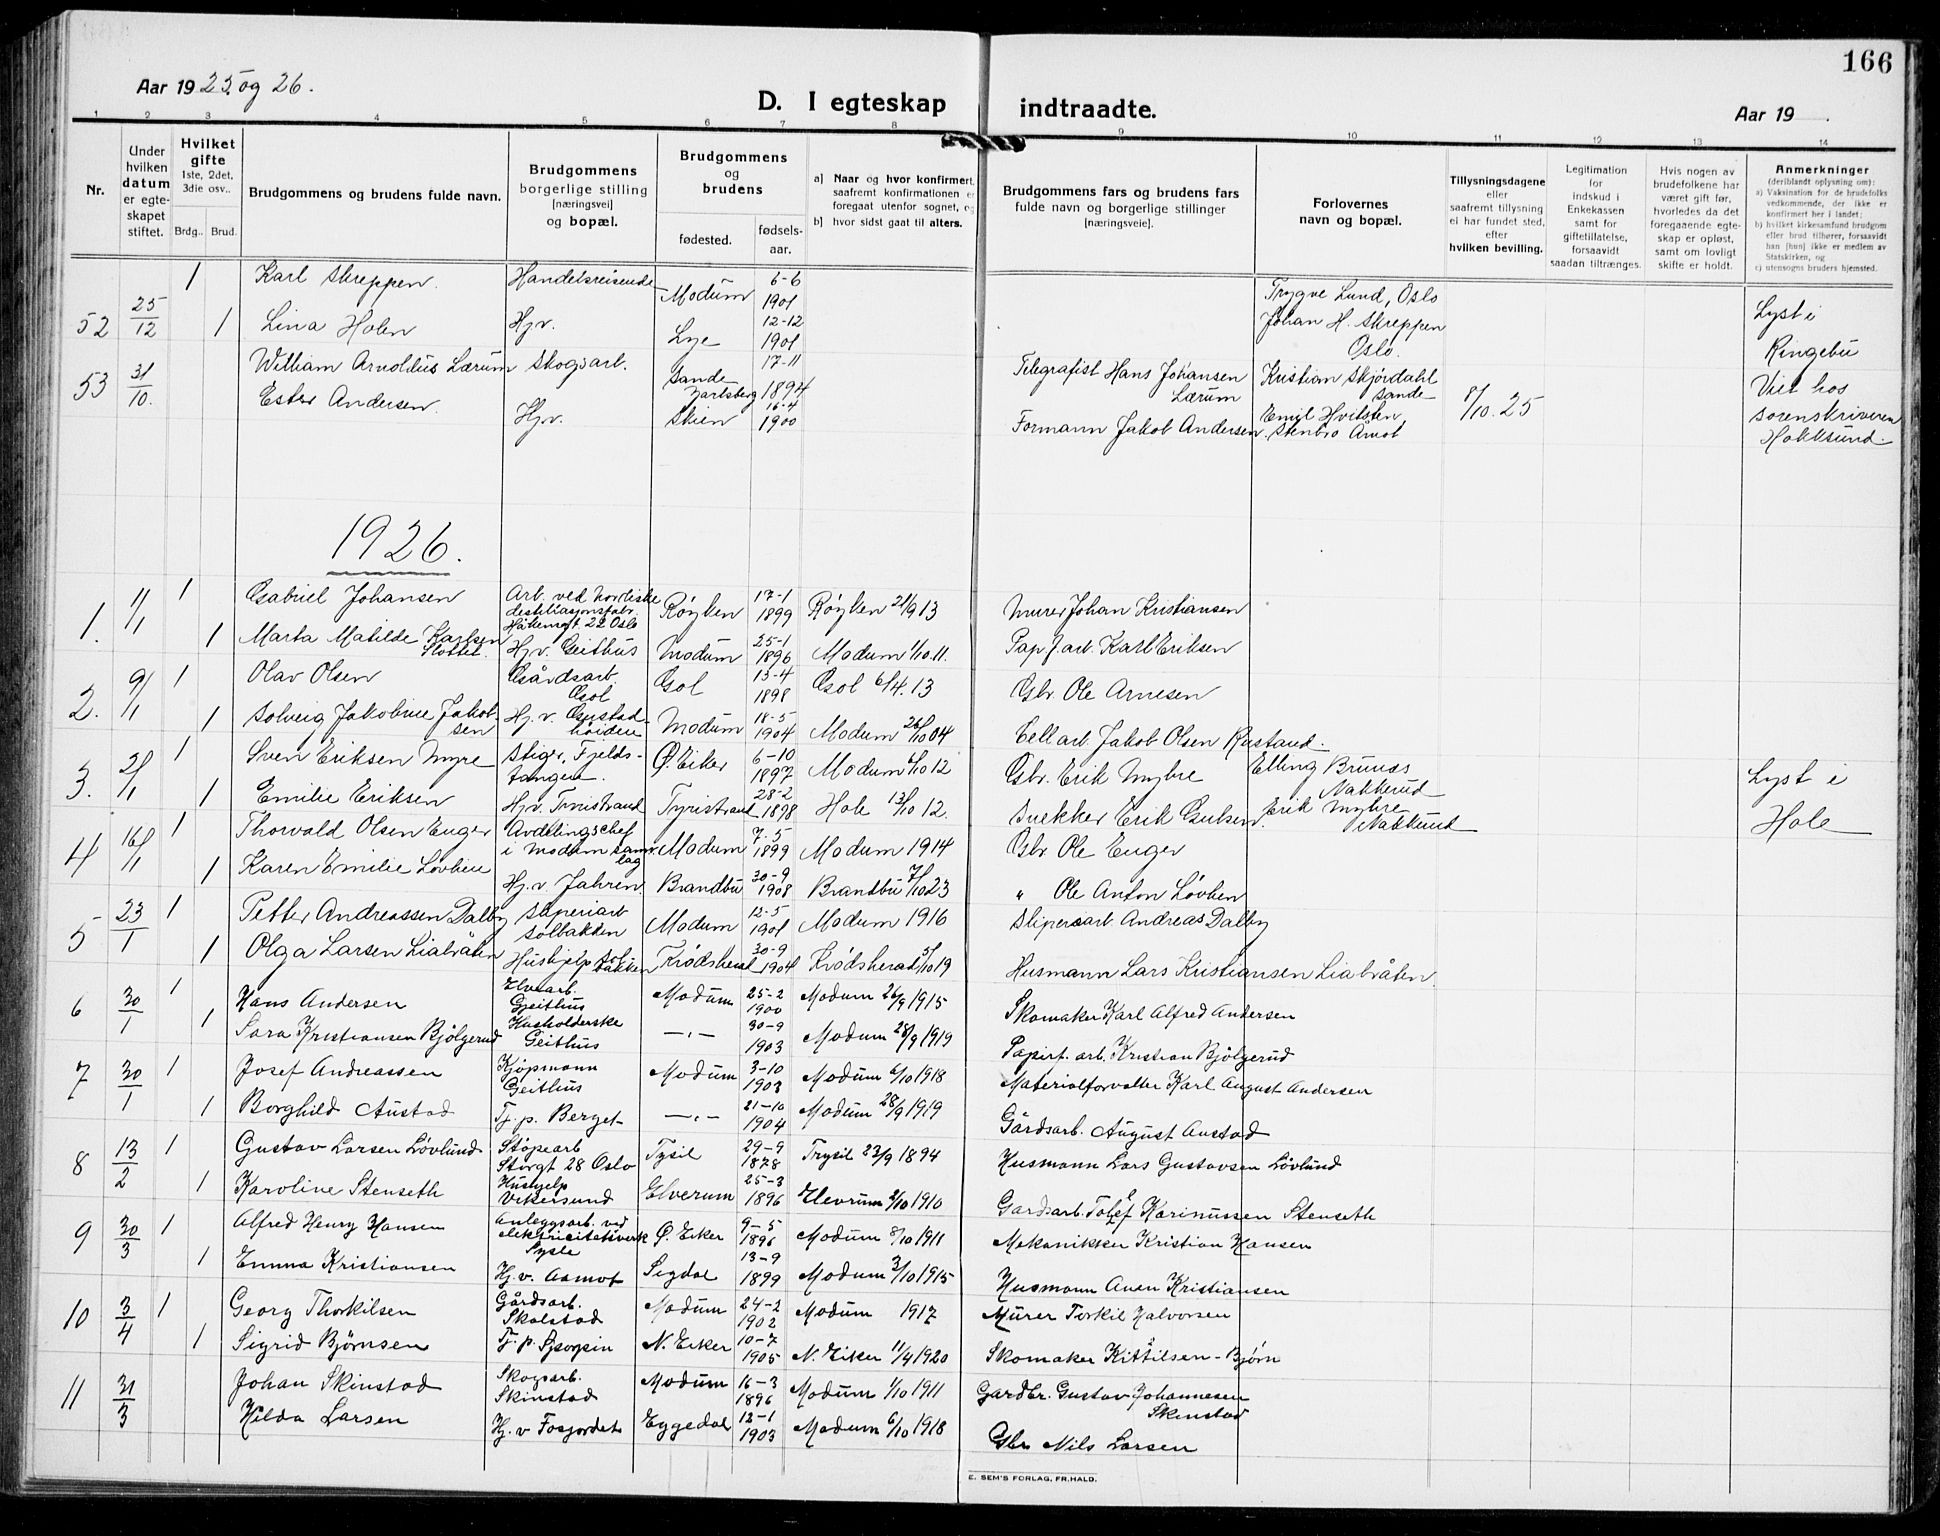 166
Aar 1925 og 26.
D. I egteskap indtraadte.
Aar 19
1 2 3 4 5 6 7 8 9 10 11 12 13 14
Nr.
Under hvilken datum er egteskapet stiftet.
Hvilket gifte 1ste, 2det, 3die osv..
Brdg.. Brud.
Brudgommens og brudens fulde navn.
Brudgommens borgerlige stilling [næringsvei] og bopæl.
Brudgommens og brudens
fødested. fødselsaar.
a) Naar og hvor konfirmert, saafremt konfirmationen er foregaat utenfor sognet, og
b) hvor sidst gaat til alters.
Brudgommens fars og brudens fars fulde navn og borgerlige stillinger [næringsvei].
Forlovernes navn og bopæl.
Tillysningsdagene eller saafremt tillysning ei har fundet sted, efter hvilken bevilling.
Legitimation for indskud i Enkekassen samt for giftetillatelse, forsaavidt saadan tiltrænges.
Hvis nogen av brudefolkene har været gift før, hvorledes da det foregaaende egteskap er opløst, samt om lovligt skifte er holdt.
Anmerkninger (deriblandt oplysning om):
a) Vaksination for de brudefolks vedkommende, der ikke er konfirmert her i landet;
b) hvilket kirkesamfund brudgom eller brud tilhører, forsaavidt han [hun] ikke er medlem av Statskirken, og
c) utensogns bruders hjemsted.
52 25/12 1 Karl Skreppen. Handelsreisende Modum 6-6 1901 Trygve Lund, Oslo
1 Lina Holen Hjv. Lye 12-12 1901 Johan H. Skreppen Oslo. Lyst i Ringebu
53 31/10. William Arnoldus Lærum Skogsarb. Sande Jarlsberg 17-11 1894 Telegrafist Hans Johansen Lærum Kristian Skjørdahl Sande 8/10.25 Viet hos
Ester Andersen. Hjv. Skien 16-4 1900 Formann Jakob Andersen. Emil Hvitsten, Stenbro Åmot sorenskriveren Hokksund.
1926.
1. 1/1 1 Gabriel Johansen Arb. ved nordiske destillasjonsfabr. 22 Oslo Røyken 17-1 1899 Røyken 21/9 13 Murer Johan Kristiansen
1 Marta Matilde Karlsen Slottet. Hjv. Geithus Modum 25-1 1896 Modum 1/10.11. Pap.f.arb. Karl Eriksen
2. 9/1 1 Olav Olsen Gårdsarb. Gol Gol 13-4 1898 Gol 6/4.13 Gbr. Ole Arnesen
1 Solveig Jakobine Jakobsen Hj. v. Gustadhöiden Modum 18-5 1904 Modum 26/10 04 Cellarb. Jakob Olsen Rustand.
3. 2/1 1 Sven Eriksen Myre Stiger, Fjeldstangen. Ø. Eiker 6-10 1897 Modum 6/10 12 Gbr. Erik Myhre Elling Brunes Nakkerud Lyst i
1 Emilie Eriksen Hjv. Tyristrand 28-2 1898 Hole 13/10 12. Snekker Erik Erik Myhre Nakkerud Hole
4 16/1 1 Thorvald Olsen Enger Avdelingschef i Modum samvlag Modum 7-5 1899 Modum 1914 Gbr Ole Enger
1 Karen Emilie Løvhen Hj. v. Jahren. Brandbu 30-9 1908 Brandbu 7/10 23 " Ole Anton Løvhen
5 23/1 1 Petter Andreassen Dalby Sliperiarb Solbakken Modum 12-5 1901 Modum 1916 Sliperiarb. Andreas Dalby
1 Olga Larsen Liabråten Hushjelp Solbakken Krødsherad 30-9 1904 Krødsherad 5/10 19 Husmann Lars Kristiansen Liabråten.
6 30/1 1 Hans Andersen Elvearb. Geithus Modum 25-2 1900 Modum 26/9 1915 Skomaker Karl Alfred Andersen
1 Sara Kristiansen Bjölgerud Husholderske Geithus —"— 30-9 1903 Modum 28/9 1919 Papirf. arb. Kristian Bjölgerud
7 30/1 1 Josef Andreassen Kjøpmann Geithus Modum 3-10 1903 Modum 6/10 1918 Materialforvalter Karl August Andersen
1 Borghild Austad Tj. p. Berget —"— 21-10 1904 Modum 28/9 1919 Gårdsarb. August Austad
8 13/2 1 Gustav Larsen Lövlund Støpearb Storgt 28 Oslo Tysil 29-9 1878 Trysil 23/9 1894 Husmann Lars Gustavsen Lövlund
1 Karoline Stenseth Hushjelp Vikersund Elverum 25-3 1896 Elevrum 2/10 1910 Gardsarb. Tollef Karinussen Stenseth
9 30/3 1 Alfred Henry Hansen Anleggsarb. ved elektricitetsverk Sysle Ø. Eiker 9-5 1896 Modum 8/10 1911 Mekanikker Kristian Hansen
1 Emma Kristiansen Hj. v. Aamot Sigdal 13-9 1899 Modum 3/10 1915 Husmann Anen Kristiansen
10 3/4 1 Georg Thorkilsen Gårdsarb. Skalstad Modum 24-2 1902 Modum 1917 Murer Torkil Halvorsen
1 Sigrid Bjørnsen Tj. p. N. Eiker 10-7 1905 N. Eiker 11/4 1920 Skomaker Kittilsen-Bjørn
11 31/3 Johan Skinstad Skogsarb. Skinstad Modum 16-3 1896 Modum 1/10 1911 Gardbr. Gustav Johannesen Skinstad
Hilda Larsen Hj. v Fosjordet Eggedal 12-1 1903 Modum 6/10 1918 Gbr Nils Larsen
E. SEM'S FORLAG, FR.HALD.